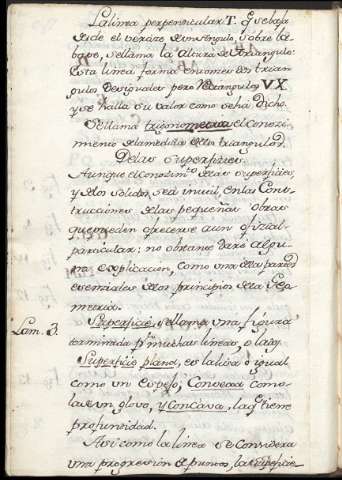 La linea perpendicular T. que baja
desde el verize de un angulo, sobre la
base, se llama la Altura del triangulo:
Esta linea forma en uno dos trian-
gulos desiguales pero rectangulos VX
y se halla su valor como se ha dicho.
Se llama trigonometria el conozi-
miento de la medida de los triangulos.
De las superficies
Aunque el conozim.to de las superficies,
y de los solidos, sea inutil, en las Cons-
trucciones de las pequeñas obras
que pueden ofrecerse a un ofizial
particular: no obstante daré algu-
na explicacion, como una de las partes
esenciales de los principios de la Geo-
metria.
Lam. 3.
Superficie, se llama una figura
terminada p.r muchas lineas, o lados.
Superficie plana, es la lisa o igual
como un espejo, Convexa como
la de un glovo, y concava, la que tiene
profundidad.
Asi como la linea se considera
una progresion de puntos, la superficie